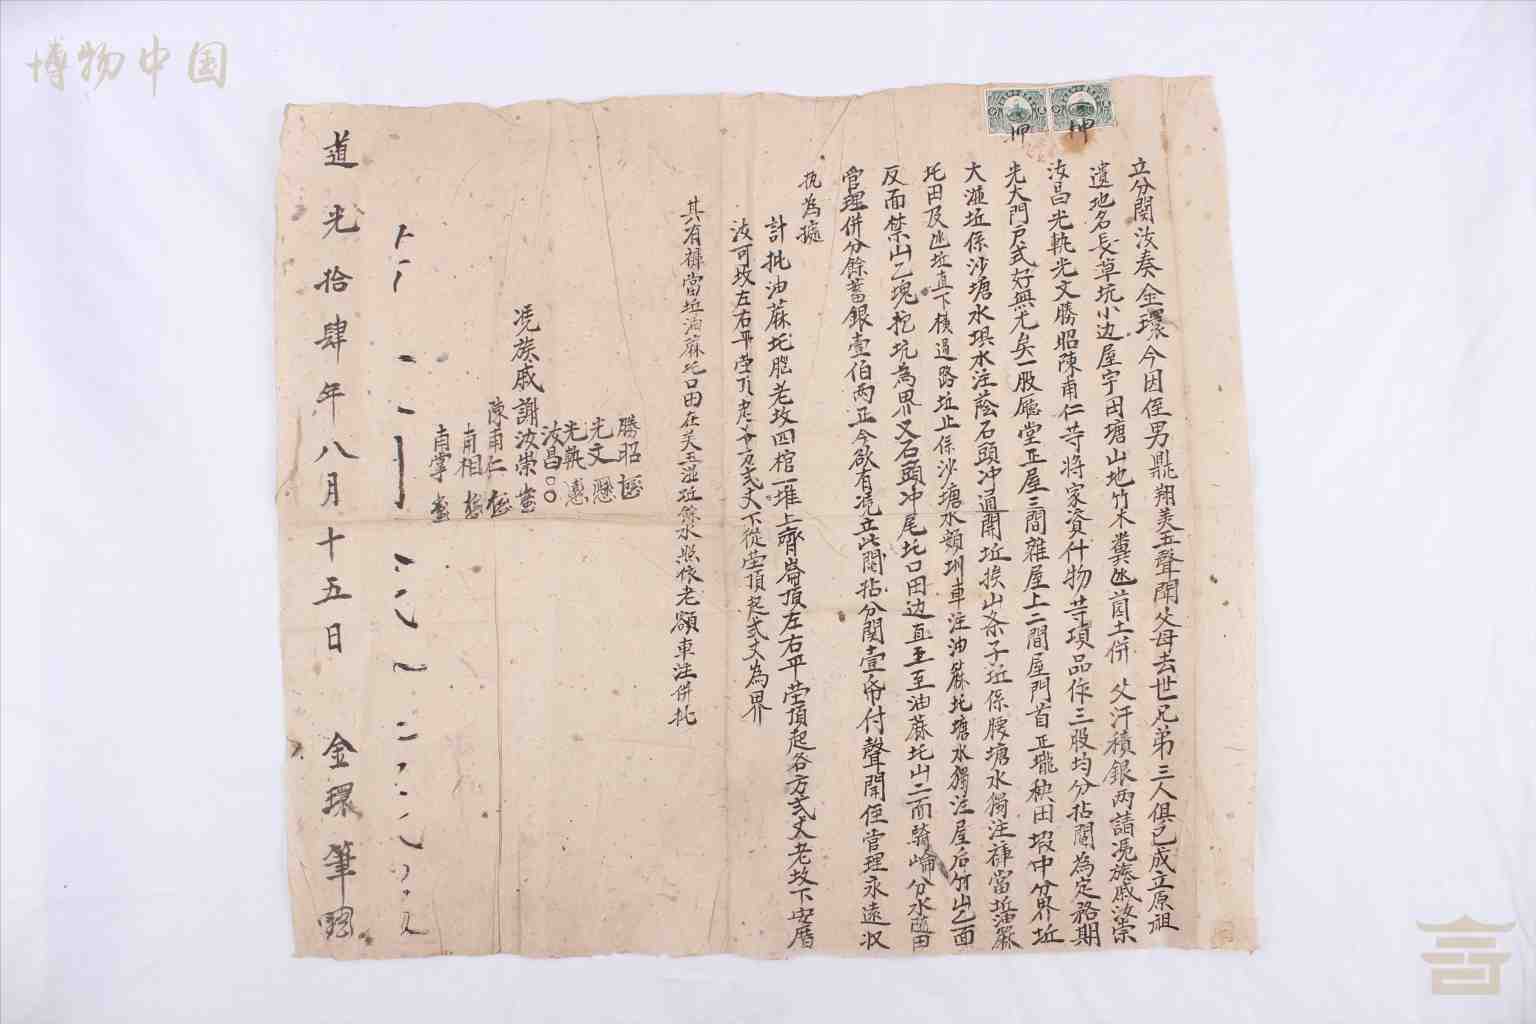 博物中国
立分関汝奏金環今因侄男鼎翔美玉聲開父母去世兄弟三人俱已成立原祖
遺地名長草坑小边屋宇田塘山地竹木糞池茴土併父汗積銀両請凴族戚汝崇
汝昌光執光文勝昭陳甫仁等将家資什物等項品作三股均分拈鬮為定務期
光大門户式好無尤矣一股廳堂正屋三間雜屋上二間屋門首正壠秧田塅中分界坵
大坵係沙塘水埧水注蔭石頭冲通開坵挨山条子坵係腰塘水獨注禆當坵油蔴
圫田及池坵直下横過路坵止係沙塘水額圳車注油蔴圫塘水獨注屋后竹山乙面
反面禁山乙塊挖坑為界又石頭冲尾圫口田边直至至油蔴圫山二面騎崘分水随田
管理併分餘蓄銀壹伯両正今欲有凴立此関拈分関壹帋付聲開侄管理永遠收
执為據
計批油蔴圫腮老坟四棺一堆上齊崙頂左右平塋頂起各方式丈老坟下安曆
汝可坟左右平塋頂起各方式丈下從塋頂起式丈為界
其有禆當坵油蔴圫口田在美玉湴坵餘水照依老額車注併批
凴族戚謝汝崇
勝昭
光文
光執
汝昌
陳甫仁
甫相
甫掌
道光拾肆年八月十五日 金環筆
押
押